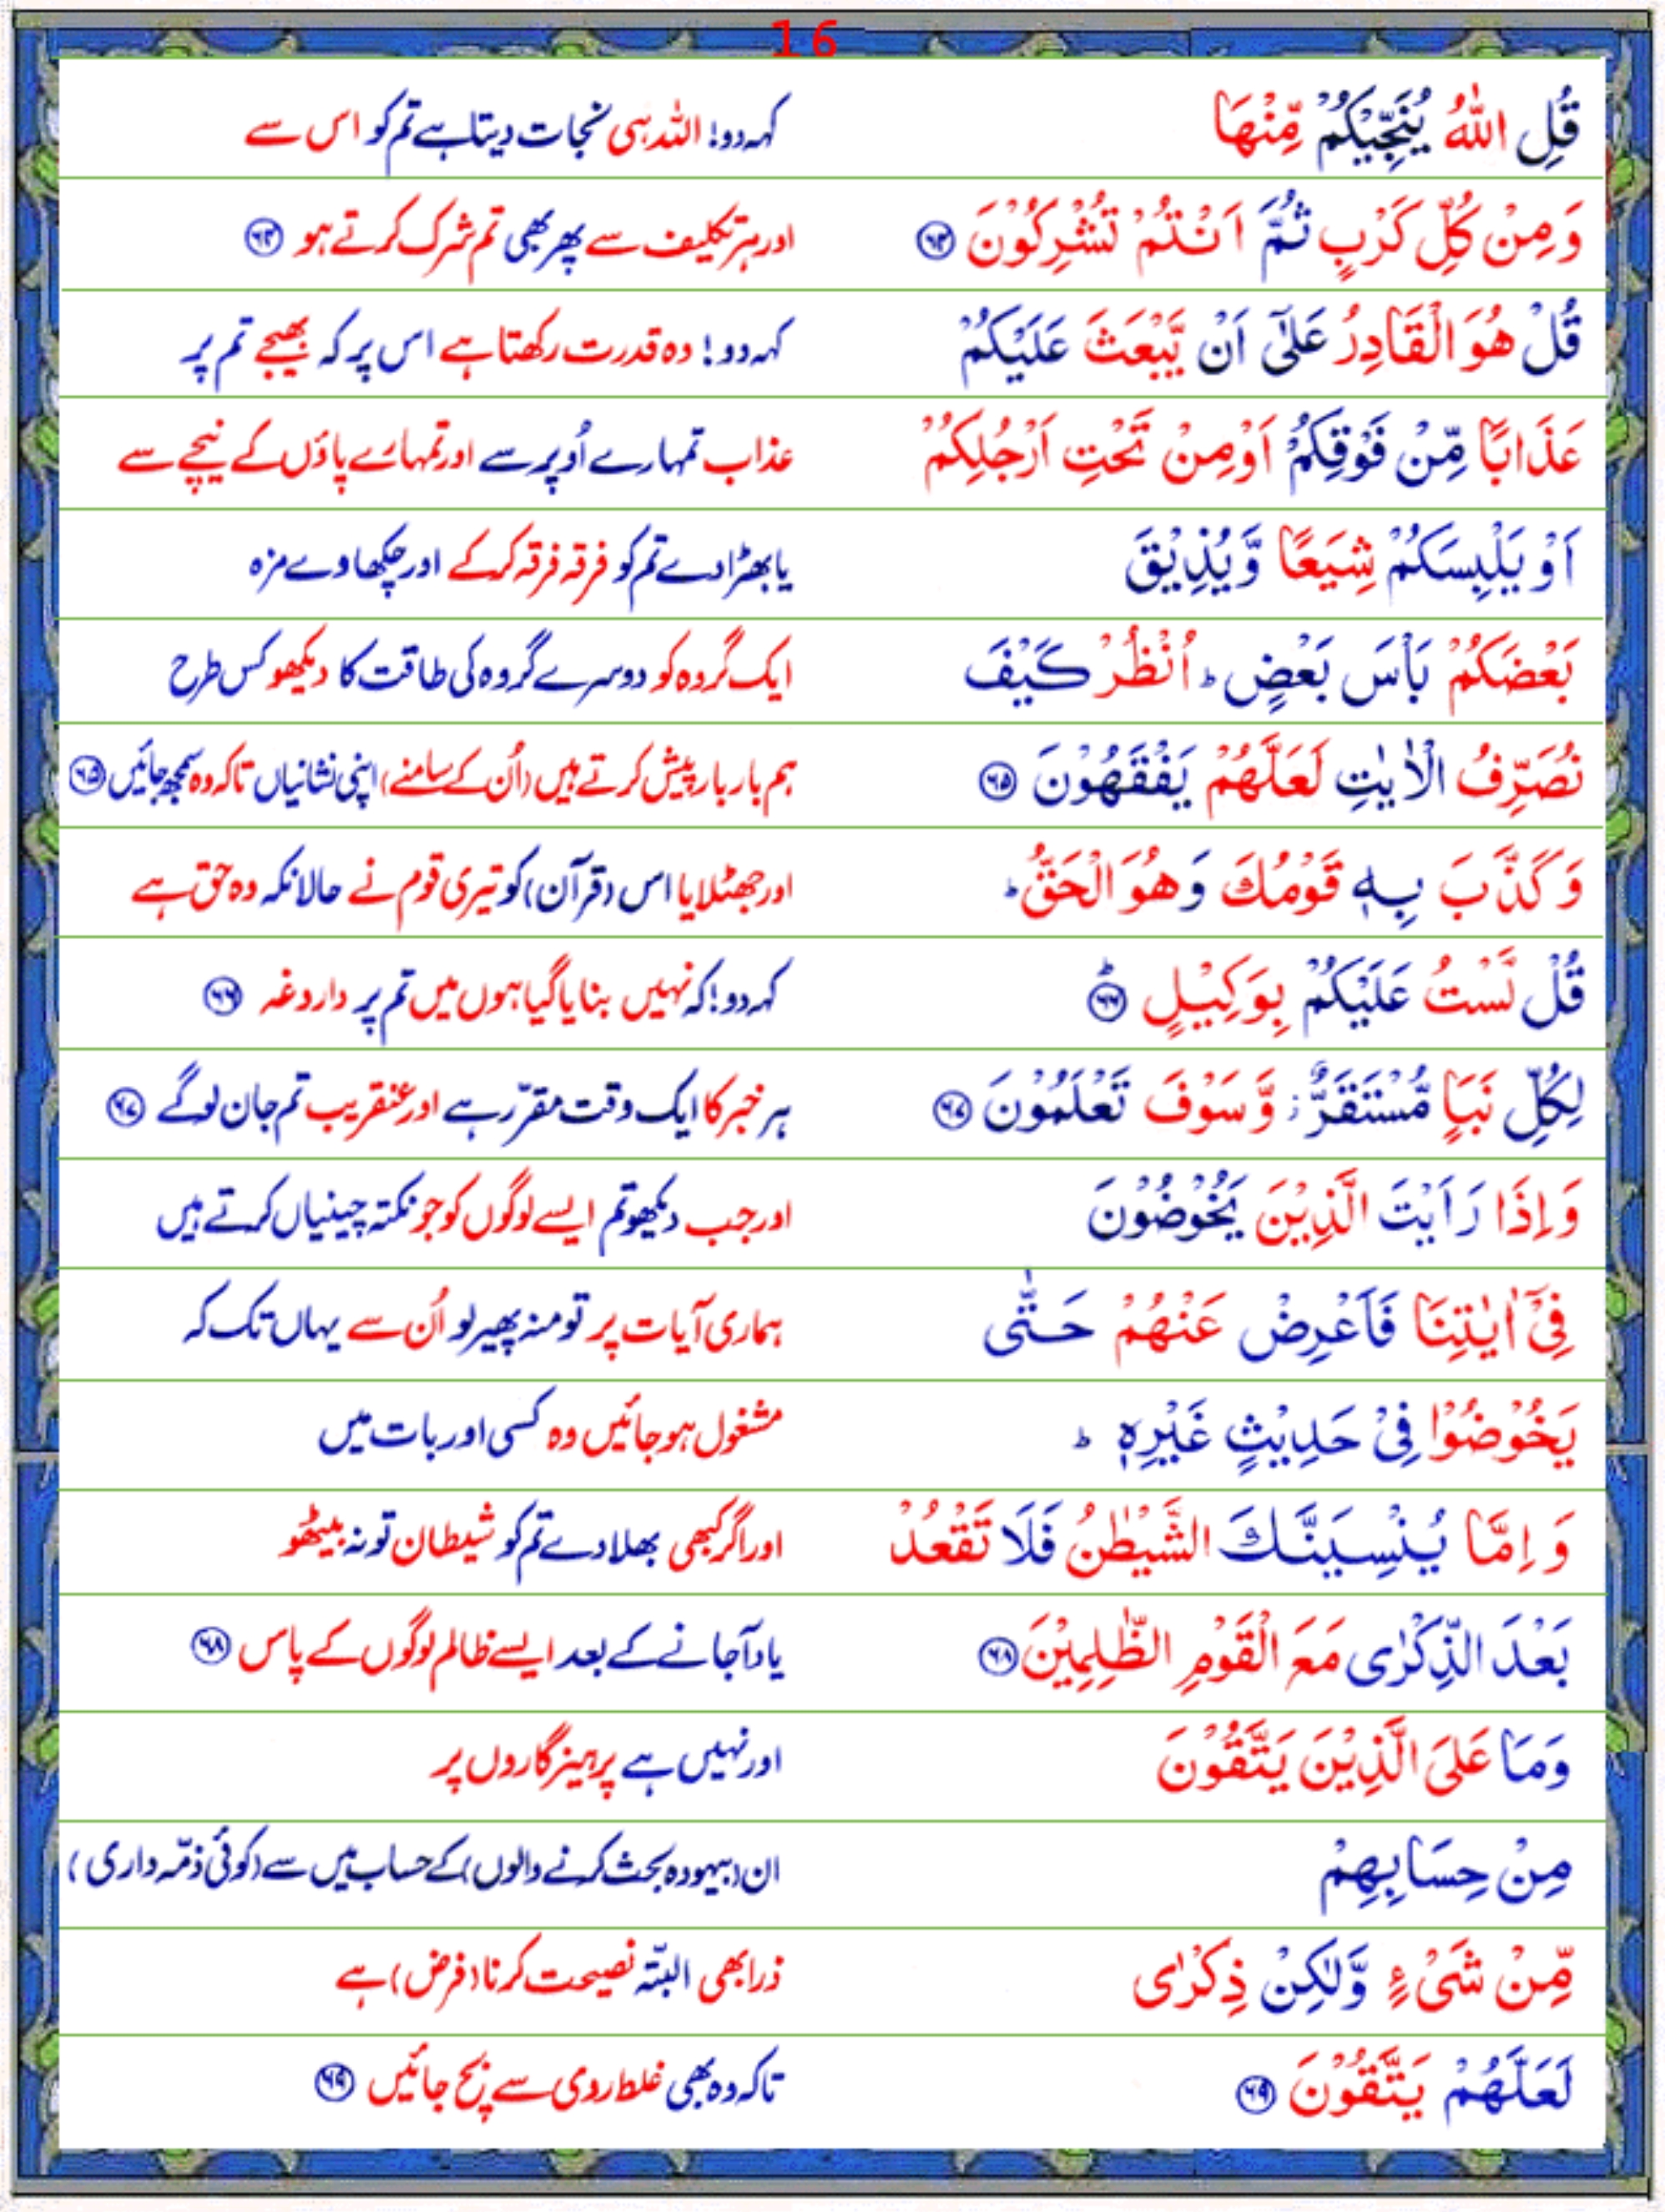 16
قُلِ اللّٰهُ يُنَجِّيْكُمْ مِّنْهَا کہہ دو! اللہ ہی نجات دیتا ہے تم کو اس سے
وَمِنْ كُلِّ كَرْبٍ ثُمَّ اَنْتُمْ تُشْرِكُوْنَ ۶۴ اور ہر تکلیف سے پھر بھی تم شرک کرتے ہو ۶۴
قُلْ هُوَ الْقَادِرُ عَلٰٓى اَنْ يَّبْعَثَ عَلَيْكُمْ کہہ دو! وہ قدرت رکھتا ہے اس پر کہ بھیجے تم پر
عَذَابًا مِّنْ فَوْقِكُمْ اَوْ مِنْ تَحْتِ اَرْجُلِكُمْ عذاب تمہارے اُوپر سے اور تمہارے پاؤں کے نیچے سے
اَوْ يَلْبِسَكُمْ شِيَعًا وَّيُذِيْقَ یا بھڑا دے تم کو فرقہ فرقہ کرکے اور چکھا دے مزہ
بَعْضَكُمْ بَاْسَ بَعْضٍ ؕ اُنْظُرْ كَيْفَ ایک گروہ کو دوسرے گروہ کی طاقت کا دیکھو کس طرح
نُصَرِّفُ الْاٰيٰتِ لَعَلَّهُمْ يَفْقَهُوْنَ ۶۵ ہم بار بار پیش کرتے ہیں (اُن کے سامنے) اپنی نشانیاں تاکہ وہ سمجھ جائیں ۶۵
وَكَذَّبَ بِهٖ قَوْمُكَ وَهُوَ الْحَقُّ ؕ اور جھٹلایا اس (قرآن) کو تیری قوم نے حالانکہ وہ حق ہے
قُلْ لَّسْتُ عَلَيْكُمْ بِوَكِيْلٍ ۶۶ کہہ دو! کہ نہیں بنایا گیا ہوں میں تم پر داروغہ ۶۶
لِكُلِّ نَبَاٍ مُّسْتَقَرٌّ ؗ وَّسَوْفَ تَعْلَمُوْنَ ۶۷ ہر خبر کا ایک وقت مقرّر ہے اور عنقریب تم جان لوگے ۶۷
وَاِذَا رَاَيْتَ الَّذِيْنَ يَخُوْضُوْنَ اور جب دیکھو تم ایسے لوگوں کو جو نکتہ چینیاں کرتے ہیں
فِيْٓ اٰيٰتِنَا فَاَعْرِضْ عَنْهُمْ حَتّٰى ہماری آیات پر تو منہ پھیر لو اُن سے یہاں تک کہ
يَخُوْضُوْا فِيْ حَدِيْثٍ غَيْرِهٖ ؕ مشغول ہو جائیں وہ کسی اور بات میں
وَاِمَّا يُنْسِيَنَّكَ الشَّيْطٰنُ فَلَا تَقْعُدْ اور اگر کبھی بھلا دے تم کو شیطان تو نہ بیٹھو
بَعْدَ الذِّكْرٰى مَعَ الْقَوْمِ الظّٰلِمِيْنَ ۶۸ یاد آجانے کے بعد ایسے ظالم لوگوں کے پاس ۶۸
وَمَا عَلَى الَّذِيْنَ يَتَّقُوْنَ اور نہیں ہے پرہیزگاروں پر
مِنْ حِسَابِهِمْ ان (بیہودہ بحث کرنے والوں) کے حساب میں سے (کوئی ذمّہ داری)
مِّنْ شَيْءٍ وَّلٰكِنْ ذِكْرٰى ذرا بھی البتّہ نصیحت کرنا (فرض) ہے
لَعَلَّهُمْ يَتَّقُوْنَ ۶۹ تاکہ وہ بھی غلط روی سے بچ جائیں ۶۹